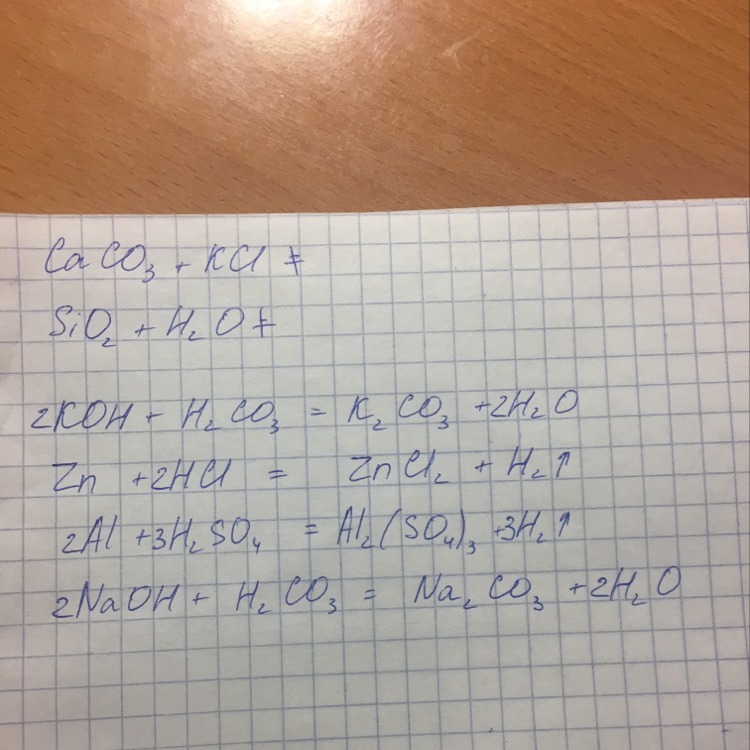 CaCO₃ + KCl ≠
SiO₂ + H₂O ≠
2KOH + H₂CO₃ = K₂CO₃ + 2H₂O
Zn + 2HCl = ZnCl₂ + H₂↑
2Al + 3H₂SO₄ = Al₂(SO₄)₃ + 3H₂↑
2NaOH + H₂CO₃ = Na₂CO₃ + 2H₂O